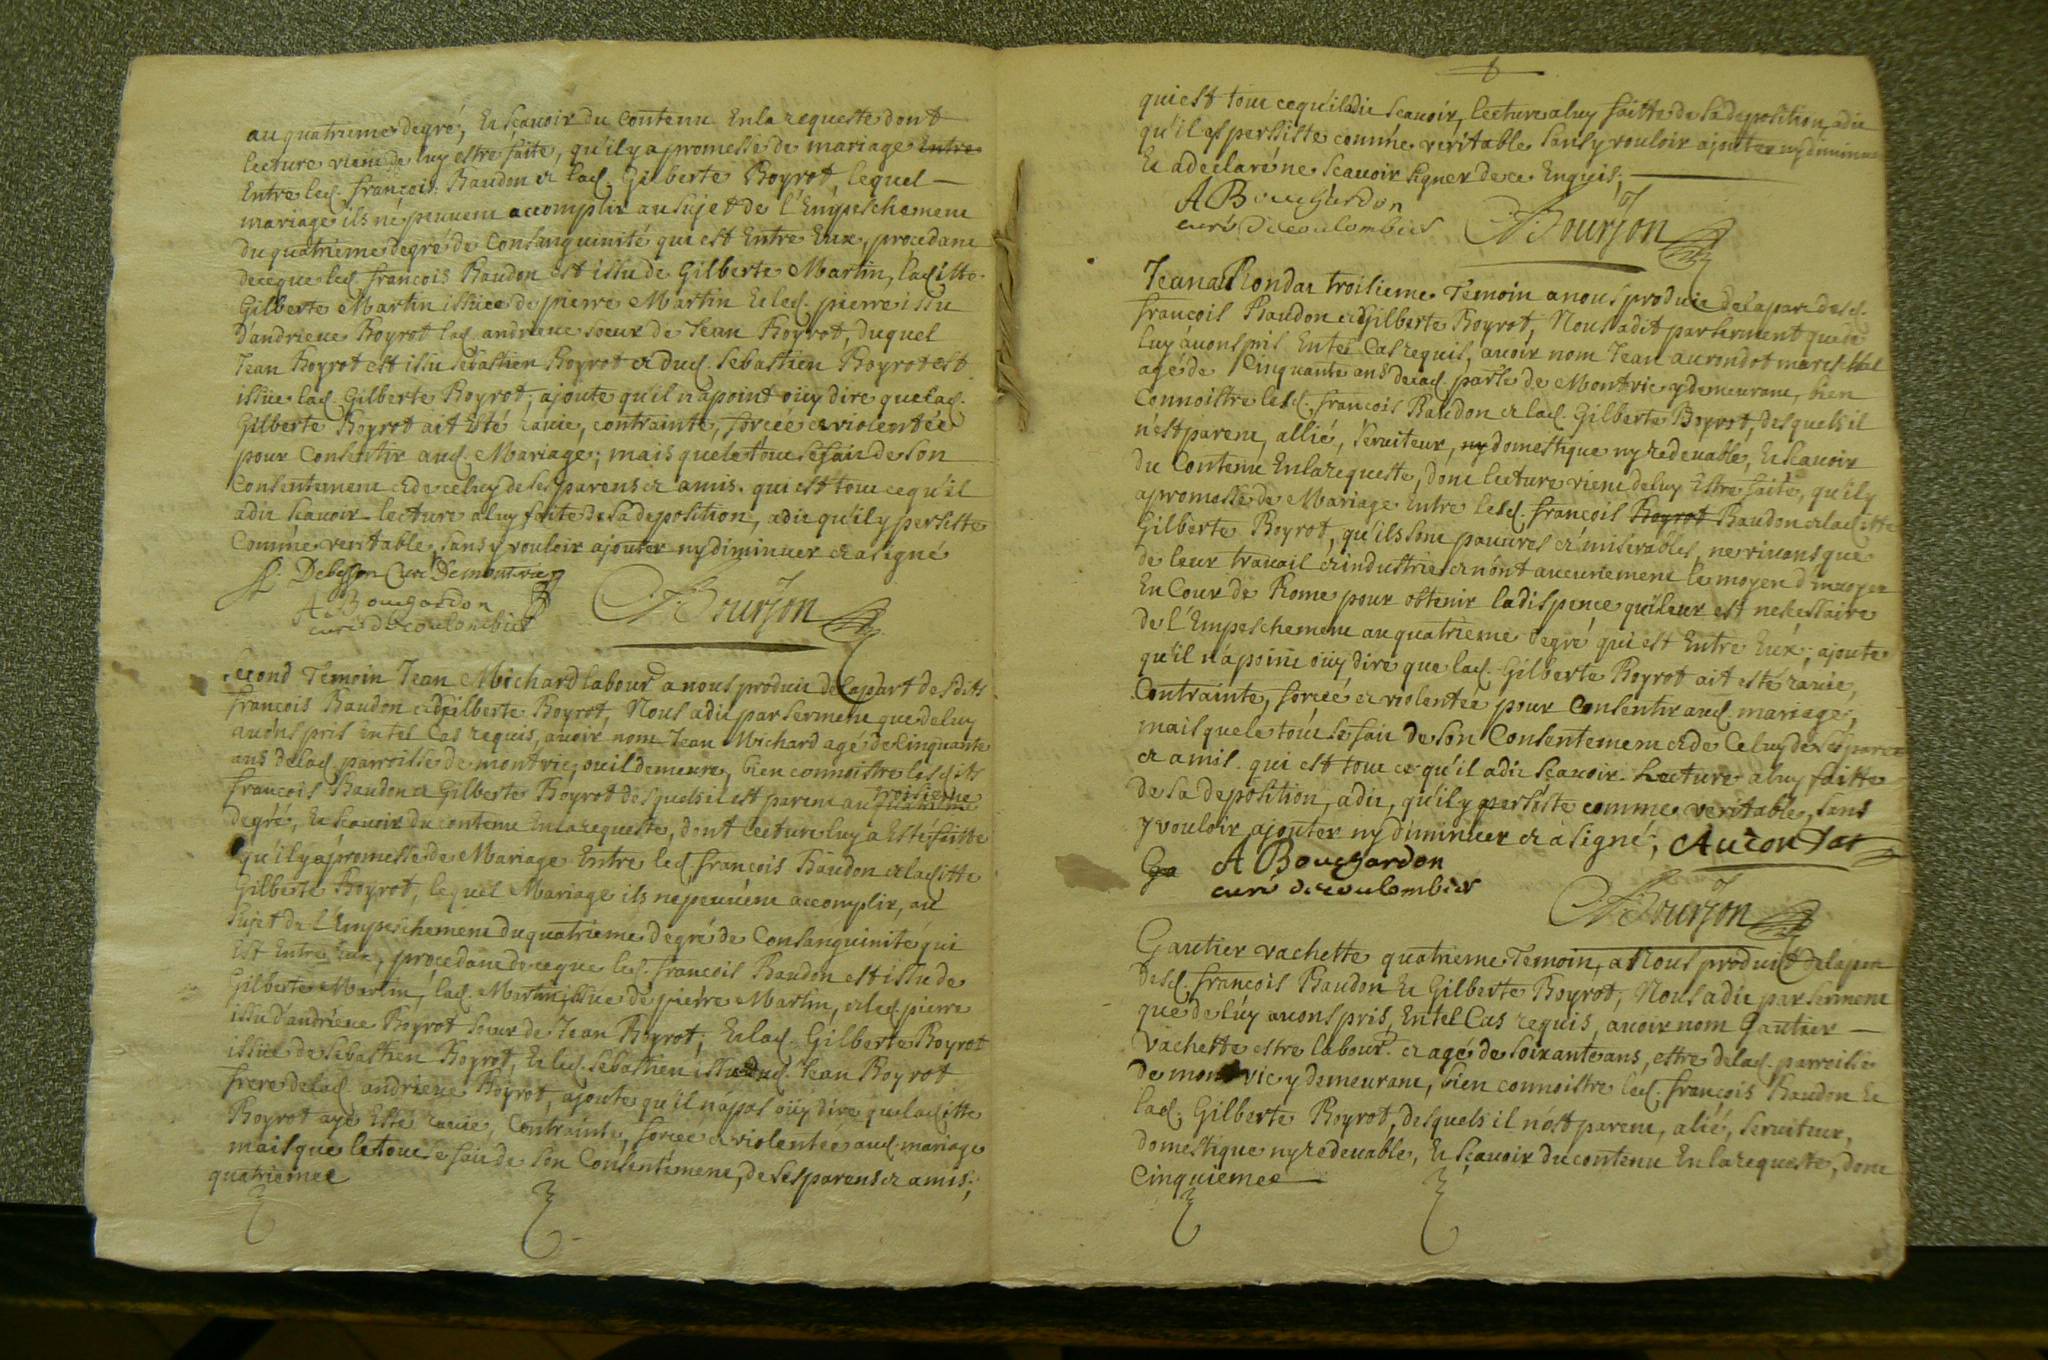 au quatrieme degré, Et scavoir du contenu En la requeste dont
lecture vient de luy estre faite, qu'il y a promesse de mariage Entre
Entre led. françois Raudon et lad. Gilberte Boyrot, lequel
mariage ils ne peuvent accomplir au sujet de l'Empeschement
du quatrieme degré de Consanguinité qui est Entre Eux, procedant
de ce que led. françois Raudon est issu de Gilberte Martin, laditte
Gilberte Martin issüee de pierre Martin Et led. pierre issu
D'andrieue Boyrot lad. andrieue soeur de Jean Boyrot, duquel
Jean Boyrot est issu sebastien Boyrot et dud. sebastien Boyrot est
issüe lad. Gilberte Boyrot; ajoute qu'il n'a point oüy dire que lad.
Gilberte Boyrot ait Esté ravie, contrainte, forcée et violentée
pour Consentir aud. Mariage; mais que le tout se fait de son
Consentement et de celuy de ses parens et amis. qui est tout ce qu'il
a dit scavoir lecture a luy faite de sa deposition, a dit qu'il y persiste
Comme veritable sans y vouloir ajouter ny diminuer et a signé
Debesson Curé Demontvic
A Bougardon
curé de coulombier
Bourjon
Second Temoin Jean Michard labour a nous produit de la part desdits
françois Raudon et Gilberte Boyrot, Nous a dit par serment que de luy
avons pris En tel Cas requis, avoir nom Jean Michard agé de Cinquante
ans de lad. parroisse de montvic, ou il demeure, bien connoistre lesdits
françois Raudon et Gilberte Boyrot desquels il est parent au quatrieme troisieme
degré, Et scavoir du contenu En la requeste, dont lecture luy a Esté faitte
qu'il y a promesse de Mariage Entre led. françois Raudon et laditte
Gilberte Boyrot, lequel Mariage ils ne peuvent accomplir, au
sujet de l'Empeschement du quatrieme degré de Consanguinité qui
est Entre Eux, procedant de ce que led. françois Raudon est issu de
Gilberte Martin, lad. Martin issüe de pierre Martin, et led. pierre
issu d'andrieue Boyrot soeur de Jean Boyrot, Et lad. Gilberte Boyrot
issüe de sebastien Boyrot, Et led. sebastien issu dud. Jean Boyrot
frere de lad. andrieue Boyrot, ajoute qu'il n'a pas oüy dire que laditte
Boyrot aye Esté ravie, Contrainte, forcée et violentée aud. mariage
mais que le tout se fait de son Consentement, de ses parens et amis;
quatriemee
qui est tout ce qu'il a dit scavoir, lecture a luy faitte de sa deposition, a dit
qu'il y persiste comme veritable sans y vouloir ajouter ny diminuer
Et a declaré ne scavoir signer de ce Enquis;
A Bougardon
curé de coulombier
Bourjon
Jean auRondat troisieme Temoin a nous produit de la part desd.
françois Raudon et Gilberte Boyrot, Nous a dit par serment que de
luy avons pris En tel Cas requis, avoir nom Jean aurondot mareschal
agé de Cinquante ans de lad. parse de Montvic y demeurant, bien
Connoistre lesd. françois Raudon et lad. Gilberte Boyrot, desquels il
n'est parent, allié, serviteur, ny domestique ny redevable, Et scavoir
du Contenu En la requeste, dont lecture vient de luy Estre faite, qu'il y
a promesse de Mariage Entre lesd. françois Boyrot Raudon et laditte
Gilberte Boyrot, qu'ils sont pauvres et miserables, ne vivans que
de leur travail et industrie et n'ont aucunement le moyen d'envoyer
En Cour de Rome pour obtenir la dispence qui leur est necessaire
de l'Empeschement au quatrieme degré qui est Entre Eux; ajoute
qu'il n'a point oüy dire que lad. Gilberte Boyrot ait esté ravie,
Contrainte, forcée et violentée pour Consentir aud. mariage,
mais que le tout se fait de son Consentement et de Celuy de ses parens
et amis. qui est tout ce qu'il a dit scavoir. Lecture a luy faitte
de sa deposition, a dit, qu'il y persiste comme veritable, sans
y vouloir ajouter ny diminuer et a signé; Aurondat
Ga A Bougardon
curé de coulombier
Bourjon
Gautier vachette quatrieme Temoin, a Nous produit de la part
desd. françois Raudon Et Gilberte Boyrot, Nous a dit par serment
que de luy avons pris, En tel Cas requis, avoir nom Gautier
Vachette estre labour. et agé de soixante ans, estre de lad. parroisse
de montvic y demeurant, bien connoistre led. françois Raudon Et
lad. Gilberte Boyrot, desquels il n'est parent, alié, serviteur,
domestique ny redevable, Et scavoir du contenu En la requeste, dont
Cinquiemee